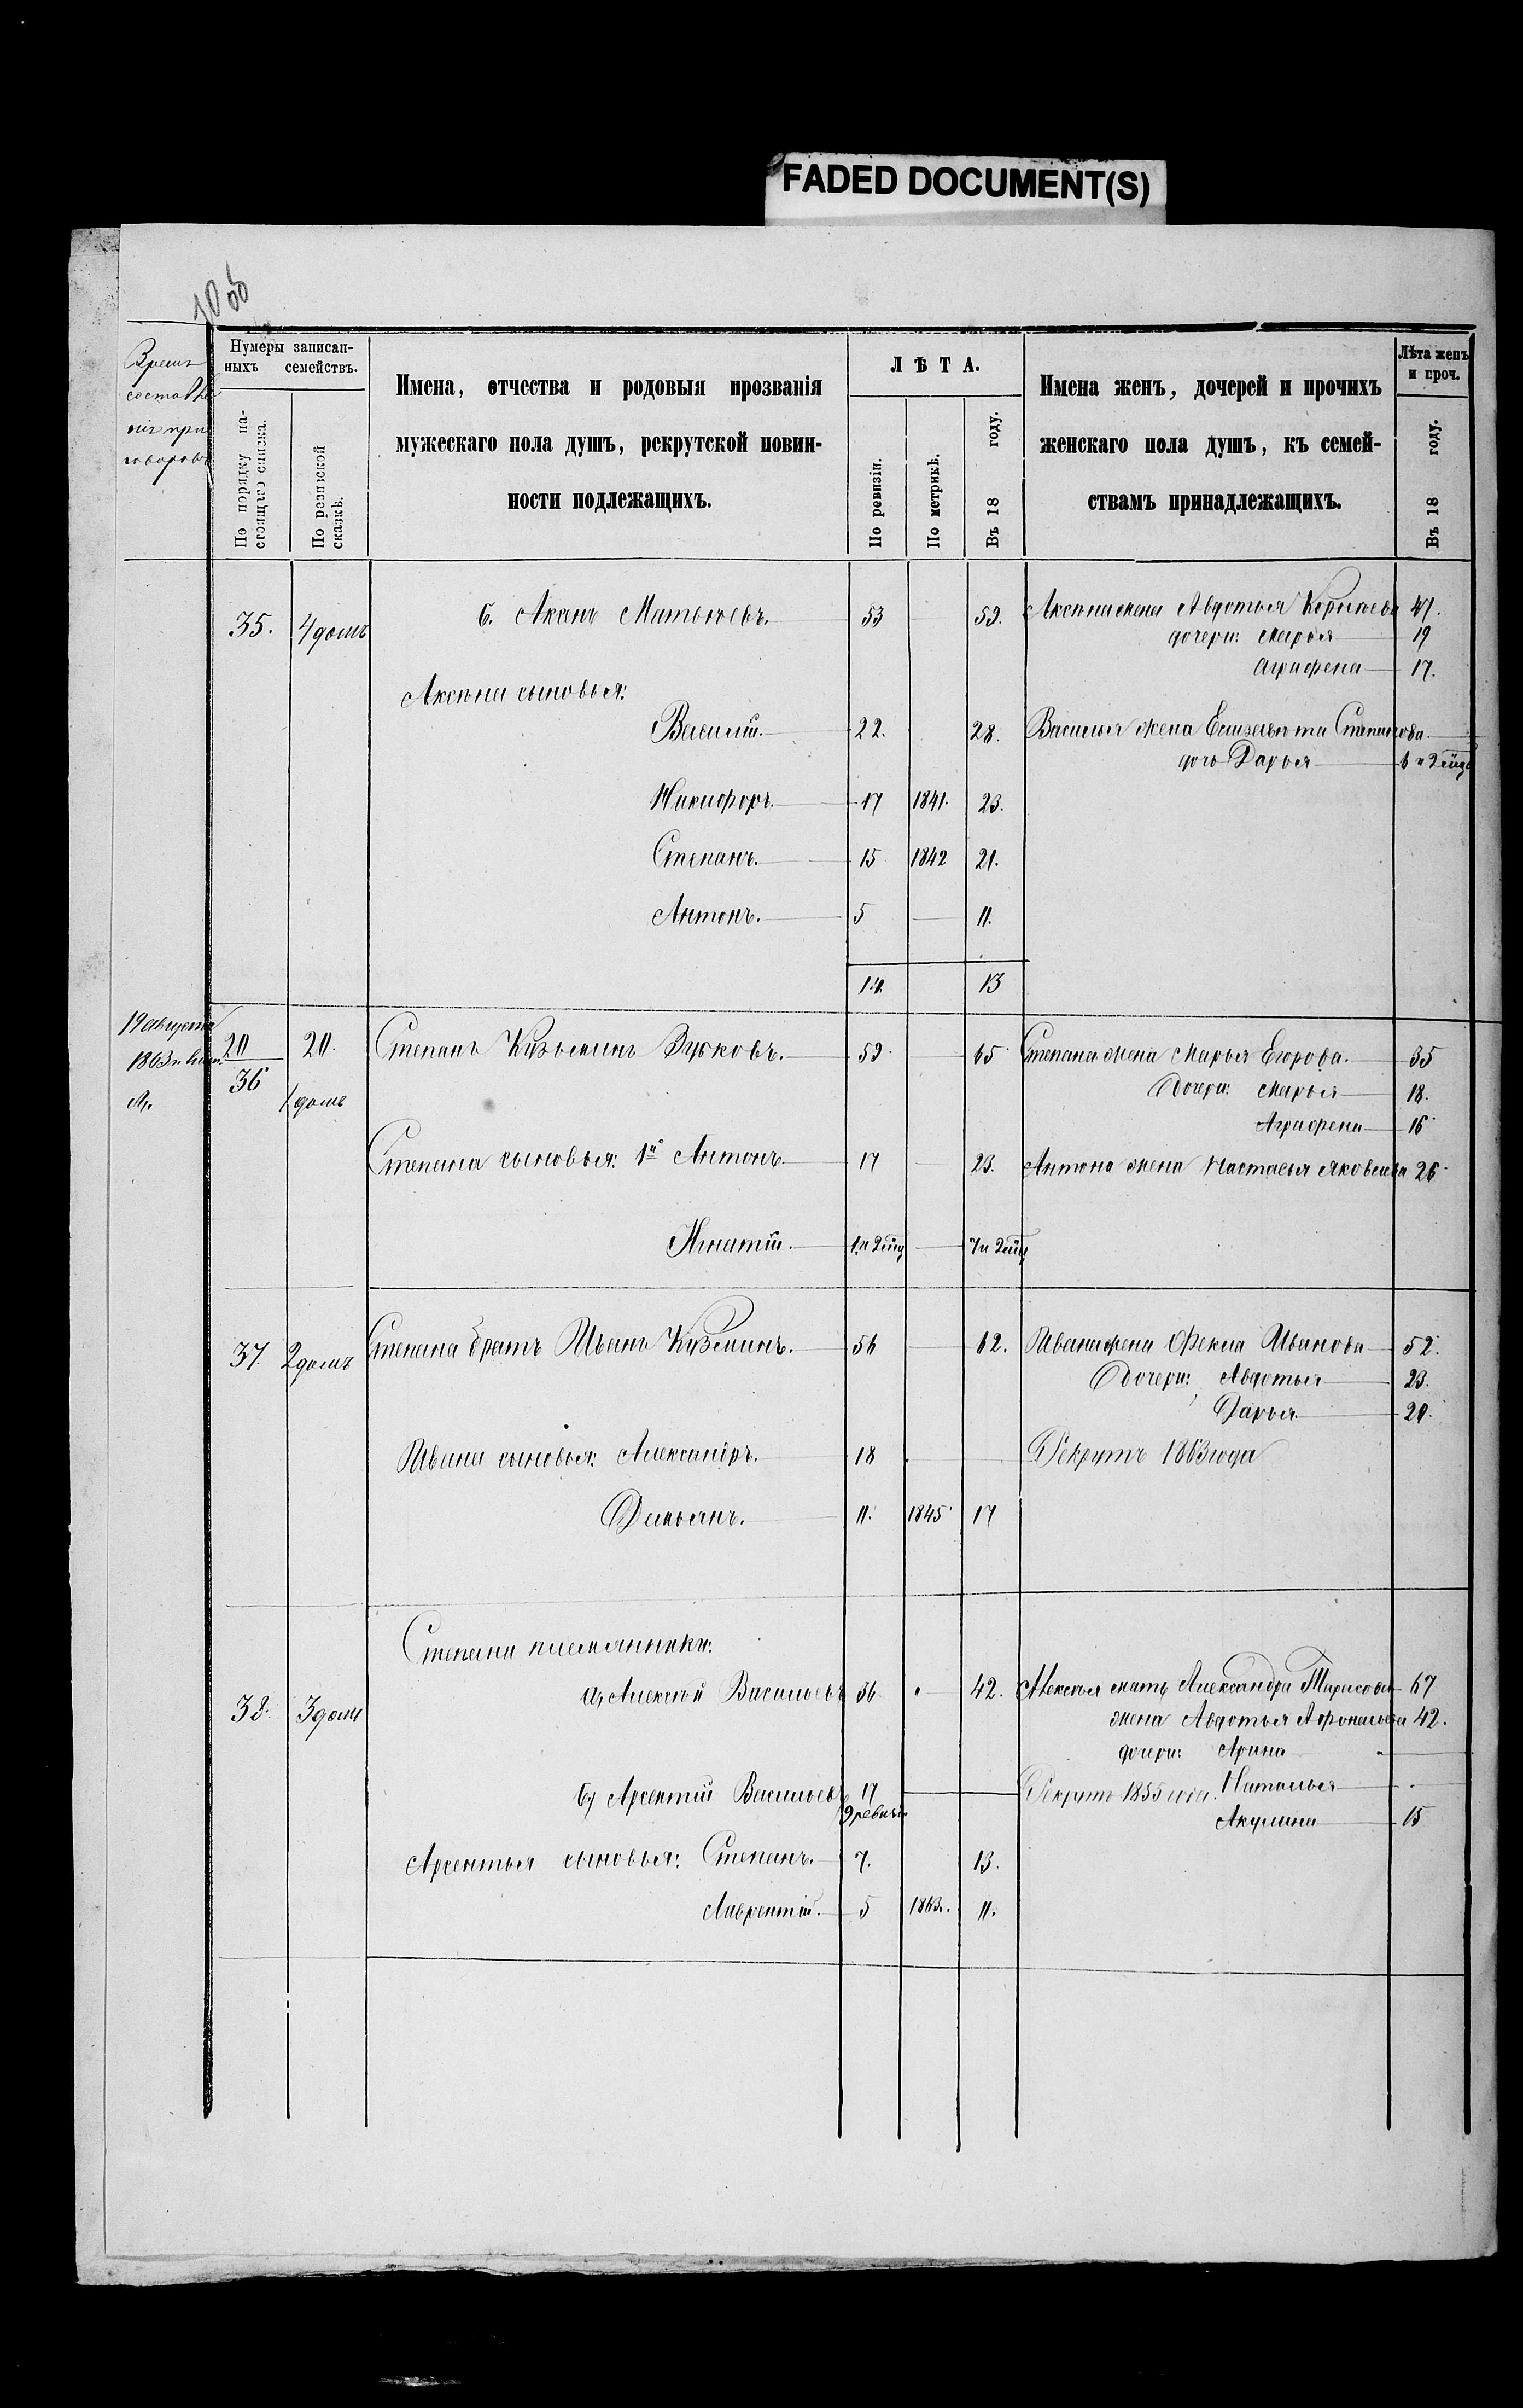 FADED DOCUMENT(S)
Время
составле
нія при
говоровъ
Нумеры записан-
ныхъ семействъ.
По порядку на-
стоящаго списка.
По ревизской
сказкѣ.
Имена, отчества и родовыя прозванія
мужескаго пола душъ, рекрутской повин-
ности подлежащихъ.
ЛѢТА.
По ревизіи.
По метрикѣ.
Въ 18 году.
Имена женъ, дочерей и прочихъ
женскаго пола душъ, къ семей-
ствамъ принадлежащихъ.
Лѣта женъ
и проч.
Въ 18 году.
35. 4 домъ б. Аксенъ Матвѣевъ. 53 59. Аксена жена Авдотья 47.
дочери: Марья 19
Аграфена 17.
Аксена сыновья:
Василій. 22. 28. Василья жена Елизавета Степанова.
дочь Дарья
Никифоръ. 17 1841. 23.
Степанъ. 15 1842 21.
Антонъ. 5 11.
13
19 августа
1863
20 20. Степанъ Кузьминъ Зубковъ. 59 65 Степана жена Марья Егорова. 35
36 1 домъ
Дочери: Марья 18.
Аграфена 16
Степана сыновья: 1й Антонъ 17 23. Антона жена Настасья Яковлева 26
Игнатій.
37 2 домъ Степана братъ Иванъ Кузминъ. 56 62. Ивана жена Фекла Иванова 52.
Дочери: Авдотья 23.
Дарья 20.
Ивана сыновья: Александръ. 18 Рекрутъ 1863 года
Демьянъ. 11. 1845 17
Степана племянники:
38. 3 домъ а, Алексѣй Васильевъ 36 42. Алексѣя мать Александра 67
жена Авдотья Афонасьева 42.
дочери: Арина
б, Арсентій Васильевъ 17 Рекрутъ 1855 года. Наталья
9 ревизіи
Акулина 15
Арсентья сыновья: Степанъ. 7. 13.
Лаврентій. 5 11.